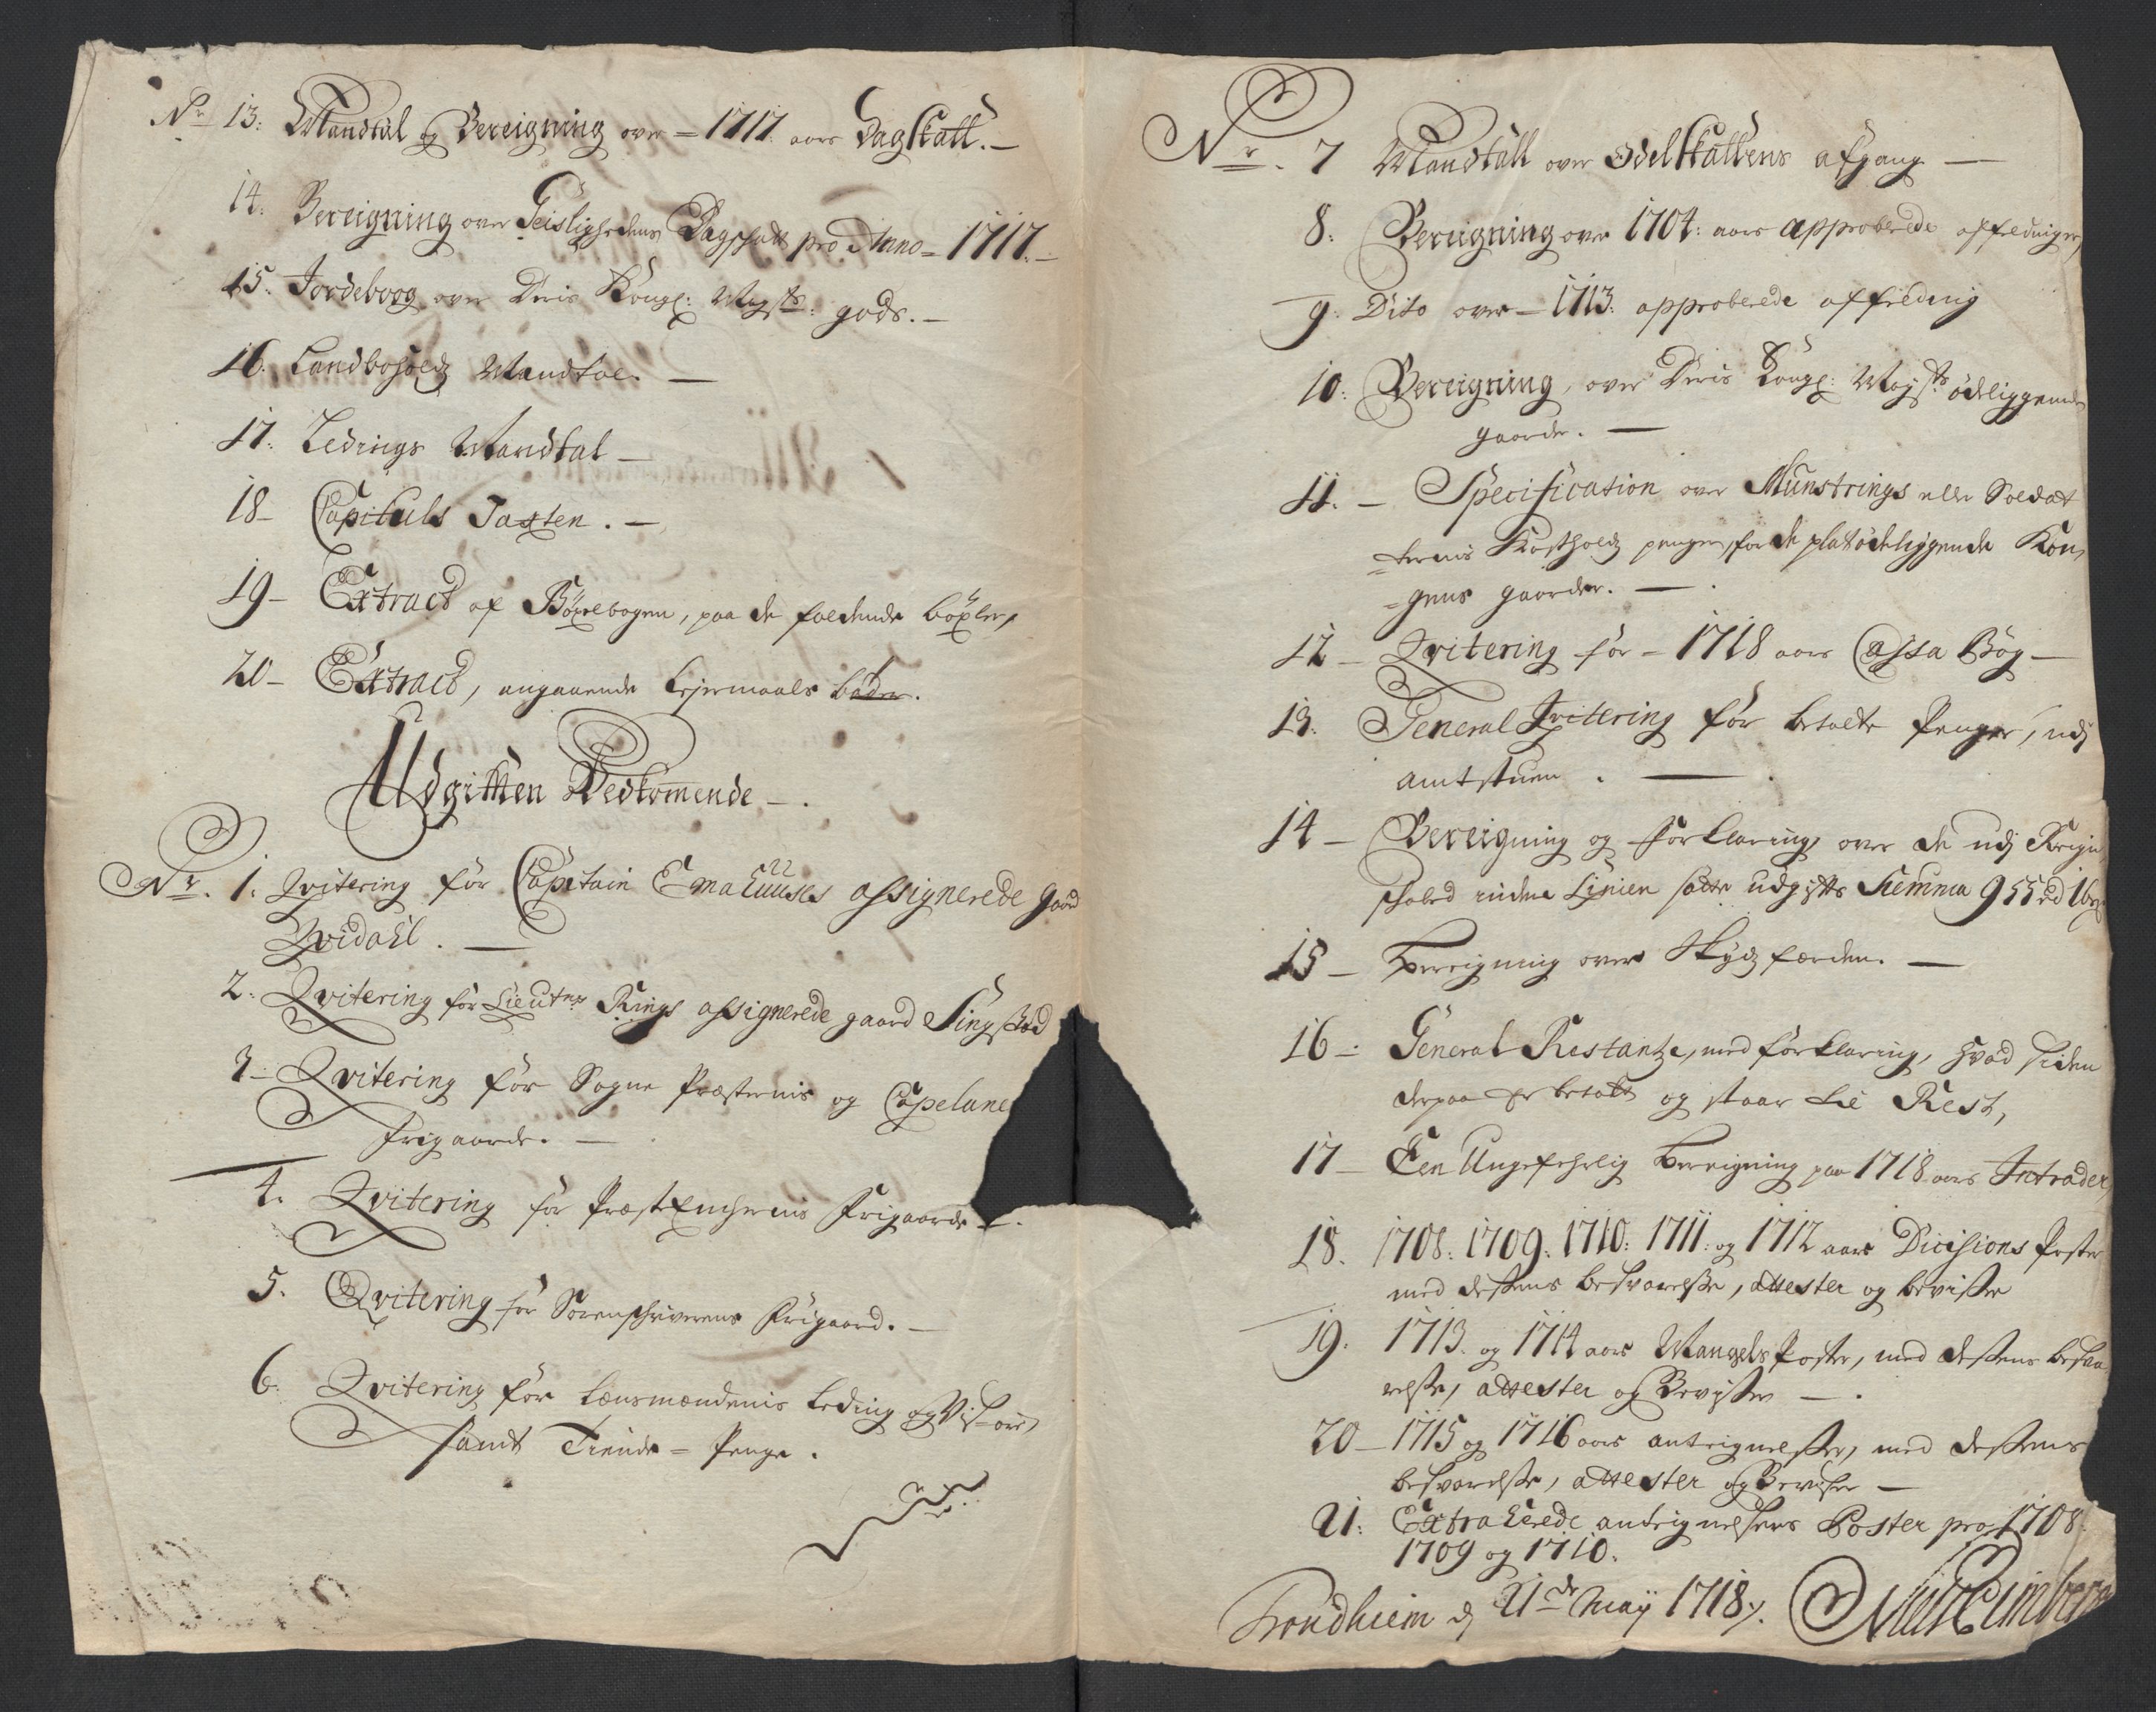 Nr 13: Mandtal og Bereigning over 1717 aars Dagskatt. –
14: Bereigning over Geislighedens Dagskatt pro Anno = 1717. –
15: Jordeboog over Deris Kongl: Mayts: gods. –
16: Landboholds Mandtal. –
17: Ledings Mandtal –
18 – Capituls Taxten. –
19 – Extract af Böxelbogen, paa de faldende böxler,
20 – Extract, angaaende Lejermaals böder.
Udgifften Vedkommende – .
Nr. 1: Qvitering for Capitain Emahuuses assignerede gaard
Qvidahl. –
2: Qvitering for Lieutn: Rings assignerede gaard Singstad
3 – Qvitering for Sogne Præsternis og Capelane
Frigaarde. –
4. Qvitering for Præst Enchernis Frigaarde – .
5. Qvitering for Sorenschriverens Frigaard. –
6. Qvitering for Lænsmændenis Leding og Visøre,
samt Tiende = Penge.
Nr. 7 Mandtall over Odelskattens afgang –
8: Bereigning over 1704: aars approberede affeldninger,
9: Dito over – 1713: approberede affelding
10: Bereigning, over Deris Kongl: Mayts ödeliggende
gaarde. –
11. – Specification over Münstrings eller Soldat
= ternis Kostholds penger for de plat ödeliggende Kon,
= gens gaarder. –
12 – Qvitering for – 1718 aars Cassa Bog –
13. General Qvitering for betalte Penger, udj
amtstuen . –
14 – Bereigning og forklaring, over de udj Reign
schabed inden Linien satte udgiffts Summa 955 rd 1
15 – Bereigning over Skydsfærden. –
16 – General Restantze, med forklaring, hvad siden
derpaa er betalt og staar til Rest,
17 – Een Ungefehrlig Bereigning paa 1718 aars Intrader,
18. 1708: 1709: 1710: 1711: og 1712 aars Decisions Poster
med dessens besvarelsse, attester og bevisser
19. 1713. og 1714 aars Mangels Poster, med dessens besva
relsse, attester og Bevisser – .
20 – 1715 og 1716 aars antegnelsser, med dessens
besvarelsse, attester og Beviser –
21: Extraherede antegnelsers Poster pro 1708
1709 og 1710.
Trondhiem d 21de Maij 1718.